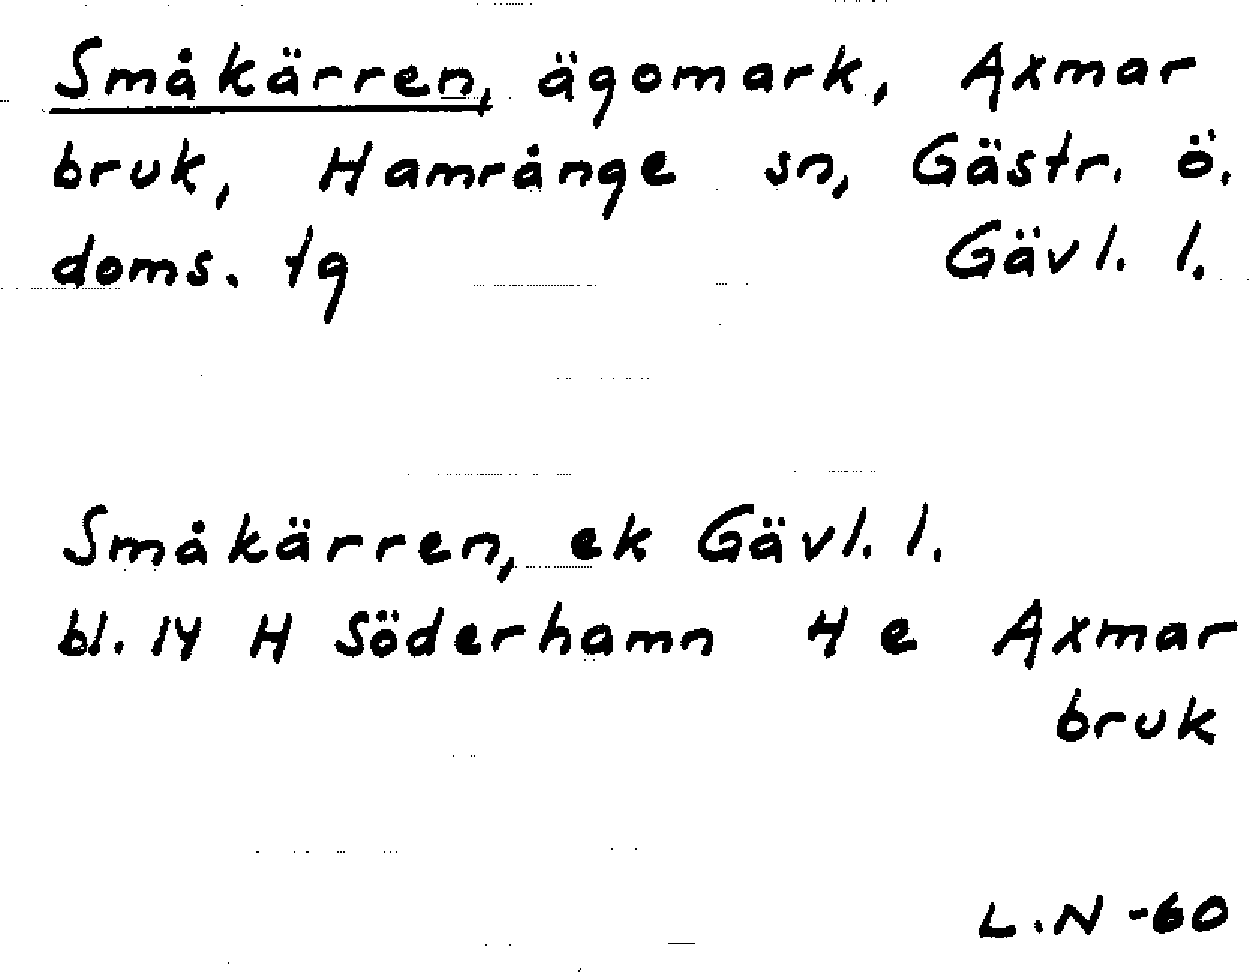 Småkärren, ägomark, Axmar
bruk, Hamrånge sn, Gästr. ö.
doms. tg Gävl. l.
Småkärren, ek Gävl. l.
bl. 14 H Söderhamn 4 e Axmar
bruk
L.N -60